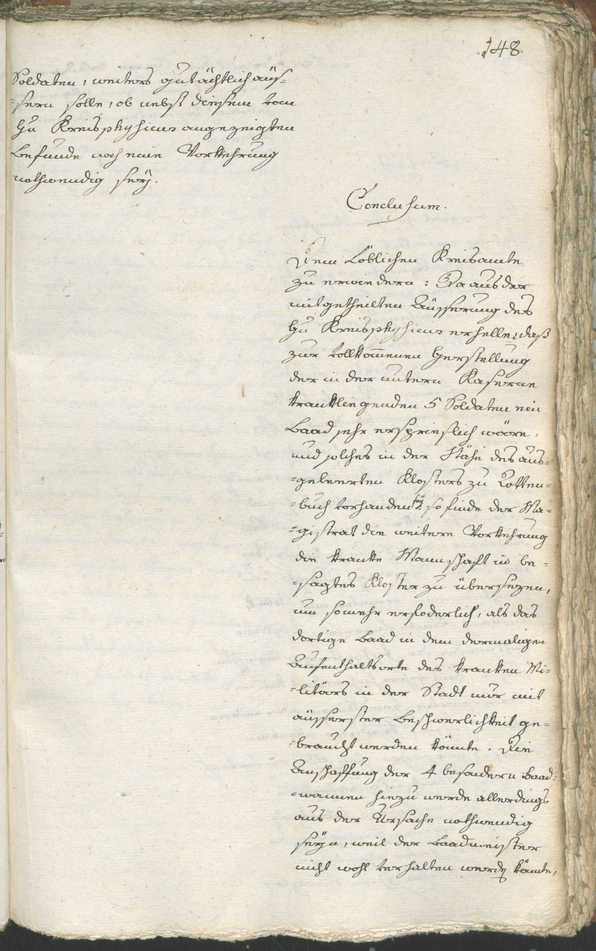 148.
Soldaten, weiters gutächtlich äus-
-sern solle, ob nebst diesem vom
H͞n Kreisphysicus angezeigten
Befunde noch eine Vorkehrung
nothwendig seÿ.
Conclusum.
Dem Löblichen Kreisamte
zu erwiedern: Da aus der
mitgetheilten Äusserung des
H͞n Kreisphysicus erhelle, daß
zur vollkom̅enen Herstellung
der in der untern Kaserne
krankliegenden 5 Soldaten ein
Baad sehr ersprieslich wäre,
und solches in der Nähe des aus-
-geleerten Klosters zu Rotten-
-buch vorhanden seÿ, so finde der Ma-
-gistrat die weitere Vorkehrung
die kranke Mannschaft in be-
-sagtes Kloster zu übersezen,
um somehr erfoderlich, als das
dortige Baad in dem dermaligen
Aufenthaltsorte des kranken Mi-
-litärs in der Stadt nur mit
äusserster Beschwerlichkeit ge-
-braucht werden könnte. Die
Anschaffung der 4 besondern Baad-
-wannen hiezu werde allerdings
aus der Ursache nothwendig
seÿn, weil der Baadmeister
nicht wohl verhalten werdẽ könnte,